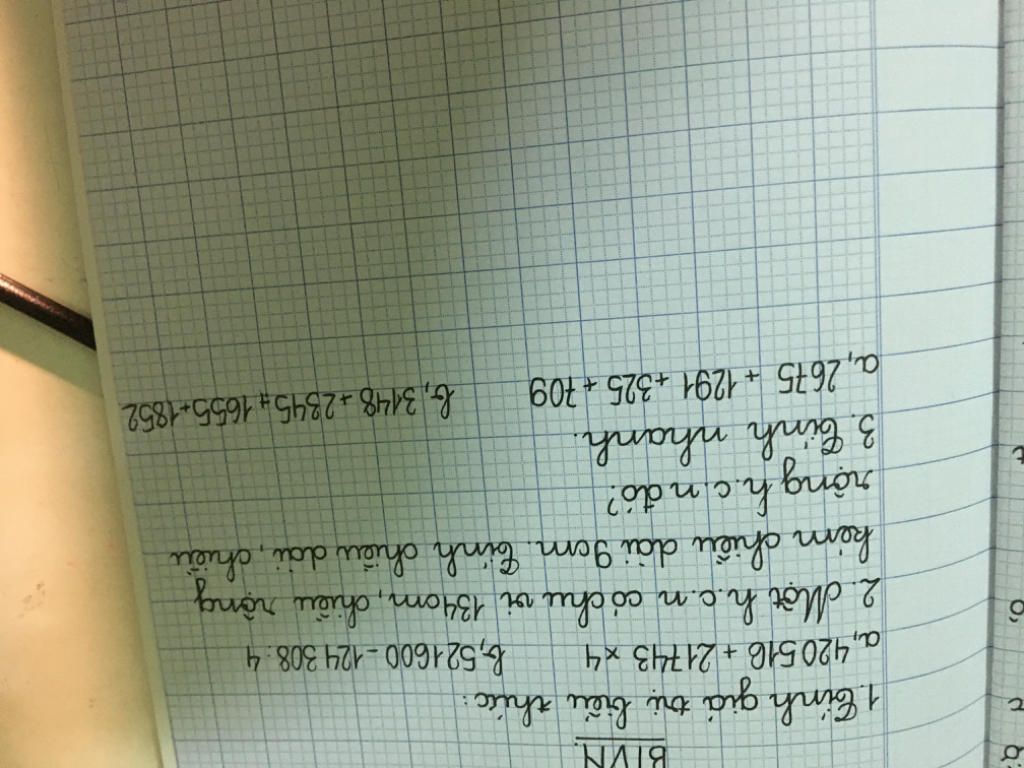 BTVN
1. Tính giá trị biểu thức:
a, 420516 + 21743 x 4 b, 521600 - 124308 : 4
2. Một h.c.n có chu vi 134cm, chiều rộng
kém chiều dài 9cm. Tính chiều dài, chiều
rộng h.c.n đó?
3. Tính nhanh.
a, 2675 + 1291 + 325 + 709 b, 3148 + 2345 + 1655 + 1852